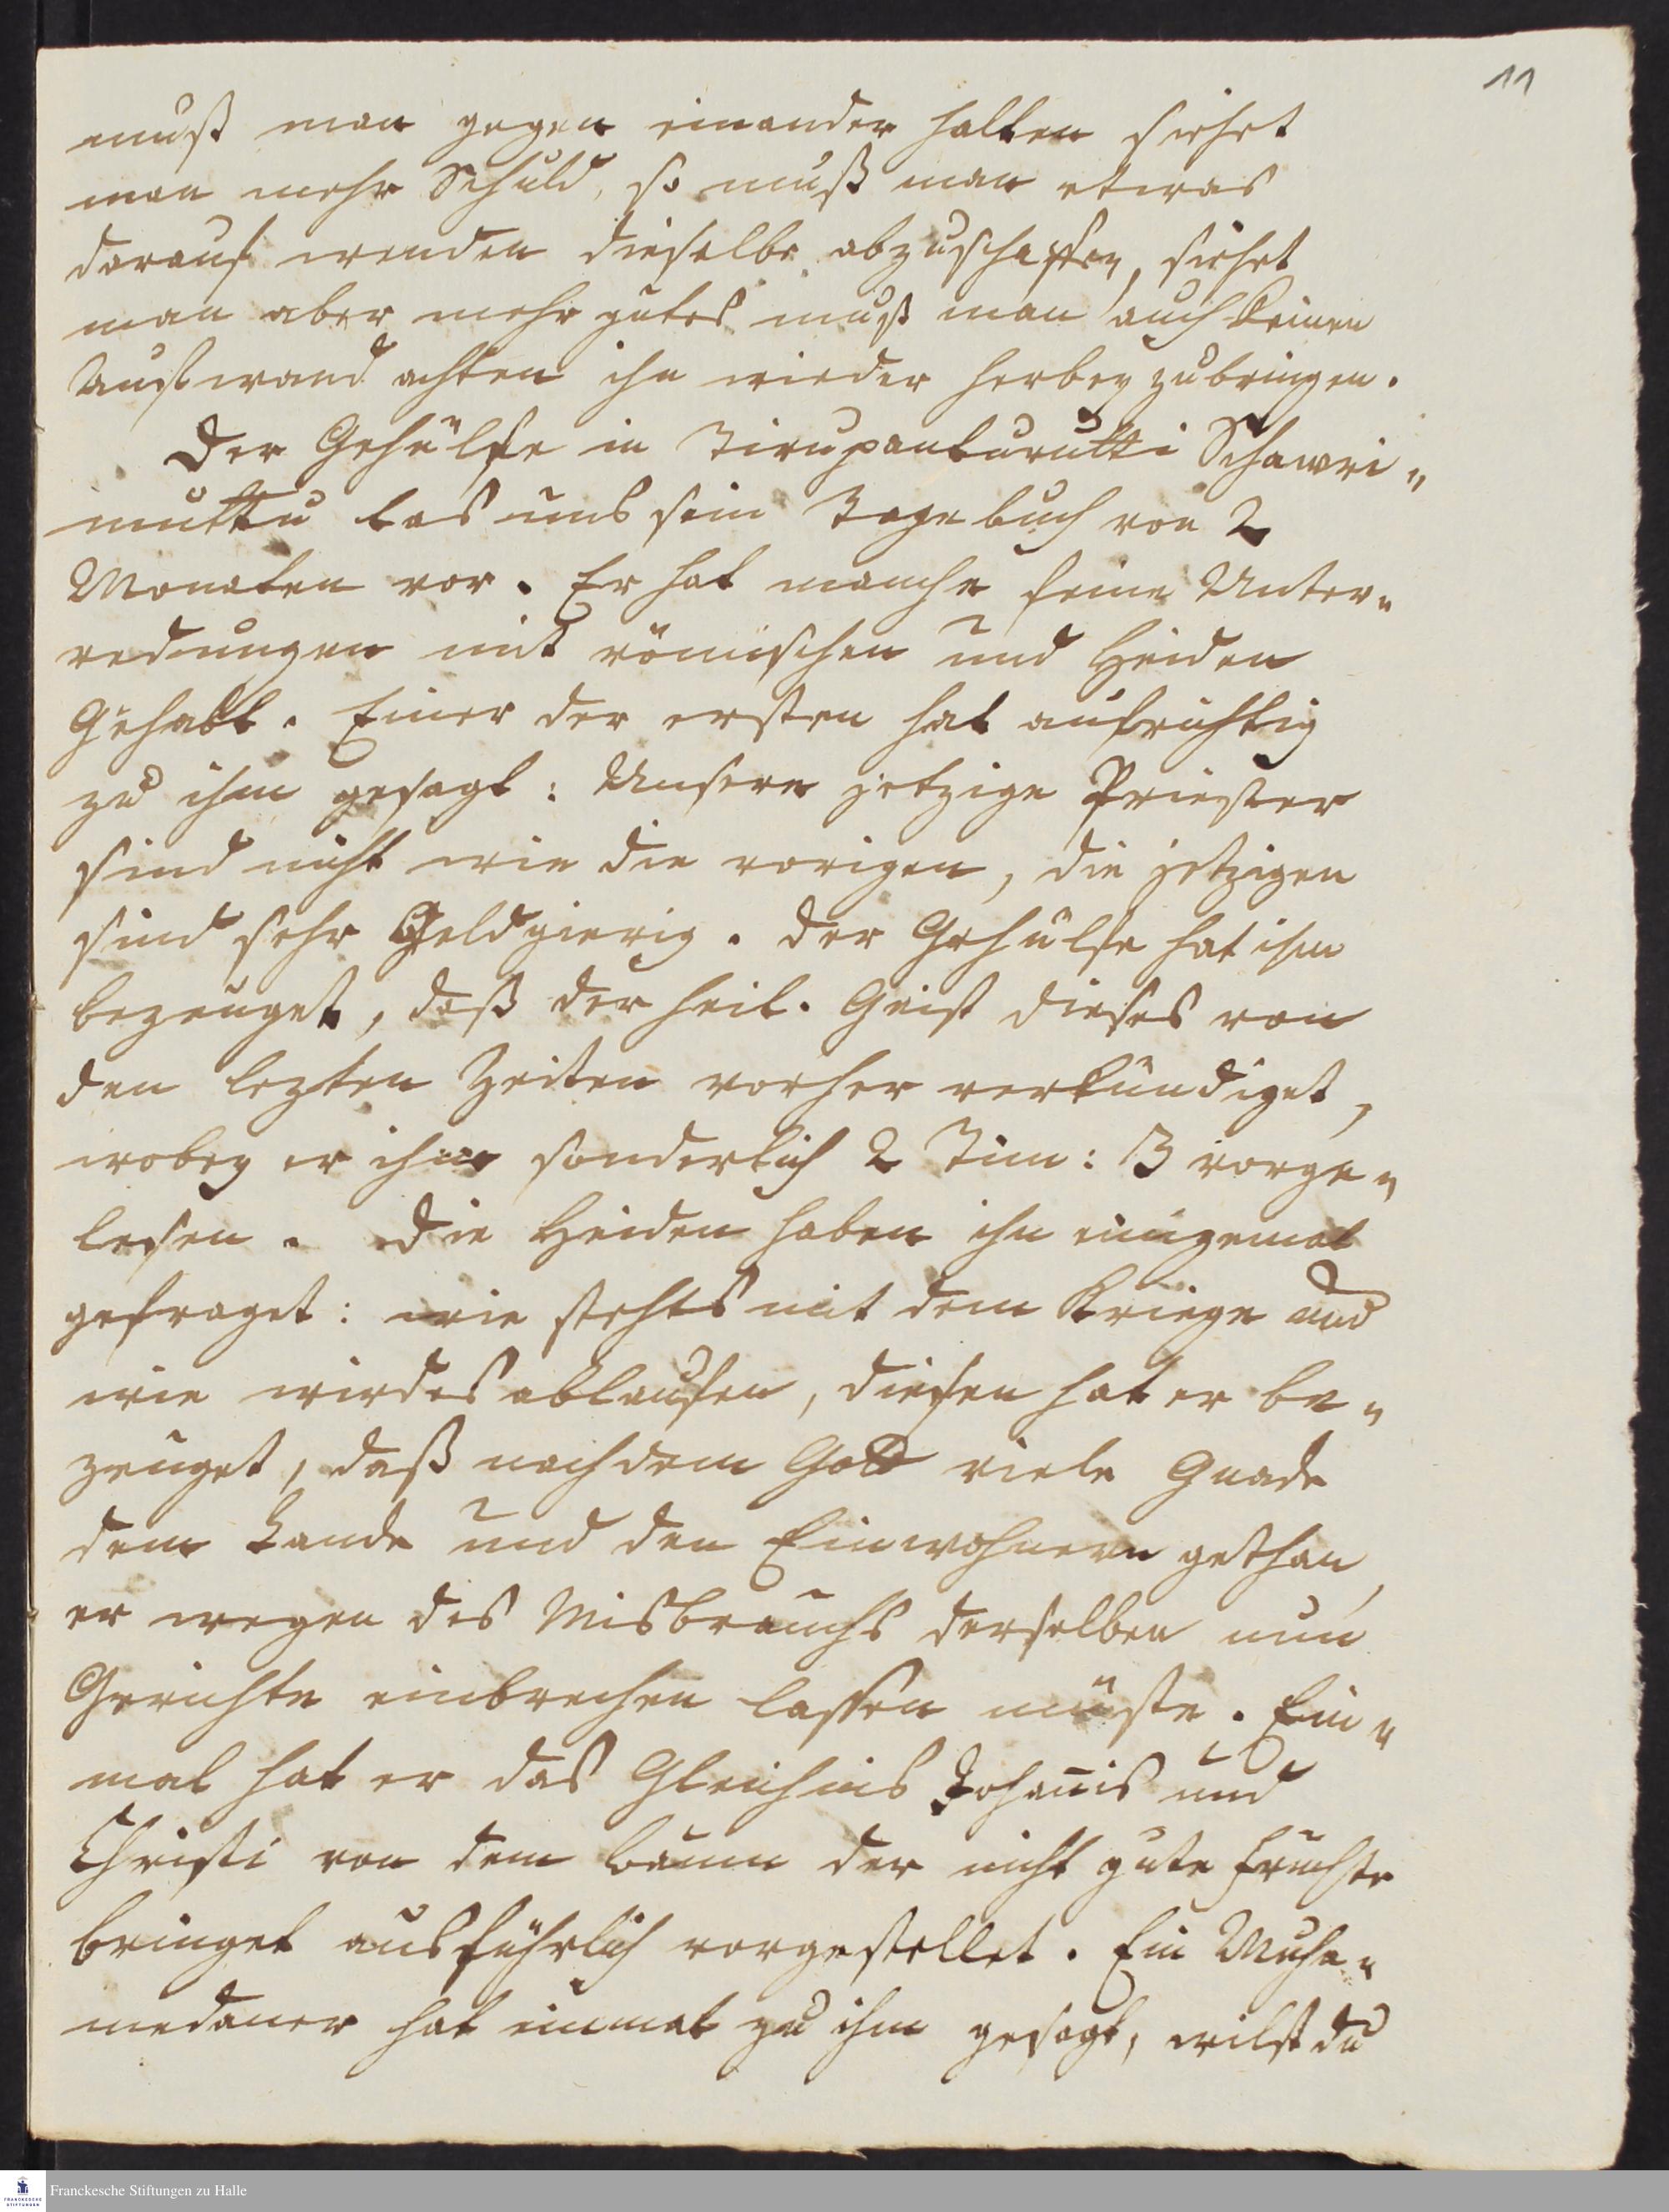 11
muß man gegen einander halten siehet
man mehr Schuld, so muß man etwas
darauf wenden dieselbe abzuschaffen, siehet
man aber mehr gutes muß man auch keinen
Aufwand achten ihn wieder herbey zu bringen.
Der Gehülfe in Tirupanturutti Schawri„
muttu las uns sein Tagebuch von 2
Monaten vor. Er hat manche feine Unter„
redungen mit römischen und Heiden
Gehabt. Einer der ersten hat aufrichtig
zu ihm gesagt: Unsere jetzige Priester
sind nicht wie die vorigen, die jetzigen
sind sehr Geldgierig. Der Gehülfe hat ihm
bezeuget, daß der heil. Geist dieses von
den lezten Zeiten vorher verkündiget,
wobey er ihm sonderlich 2 Tim: 3 vorge„
lesen. Die Heiden haben ihn einigemal
gefraget: wie stehts mit dem Kriege und
wie wird es ablaufen, diesen hat er be„
zeuget, daß nachdem Gott viele Gnade
dem Lande und den Einwohnern gethan,
er wegen des Misbrauchs derselben nun
Gerichte einbrechen lassen müste. Ein„
mal hat er das Gleichnis Joha&#x0304;nis und
Christi von dem Baum der nicht gute Früchte
bringet ausführlich vorgestellet. Ein Muha„
medaner hat einmal zu ihm gesagt, wilst du
Franckesche Stiftungen zu Halle
FRANCKESCHE
STIFTUNGEN